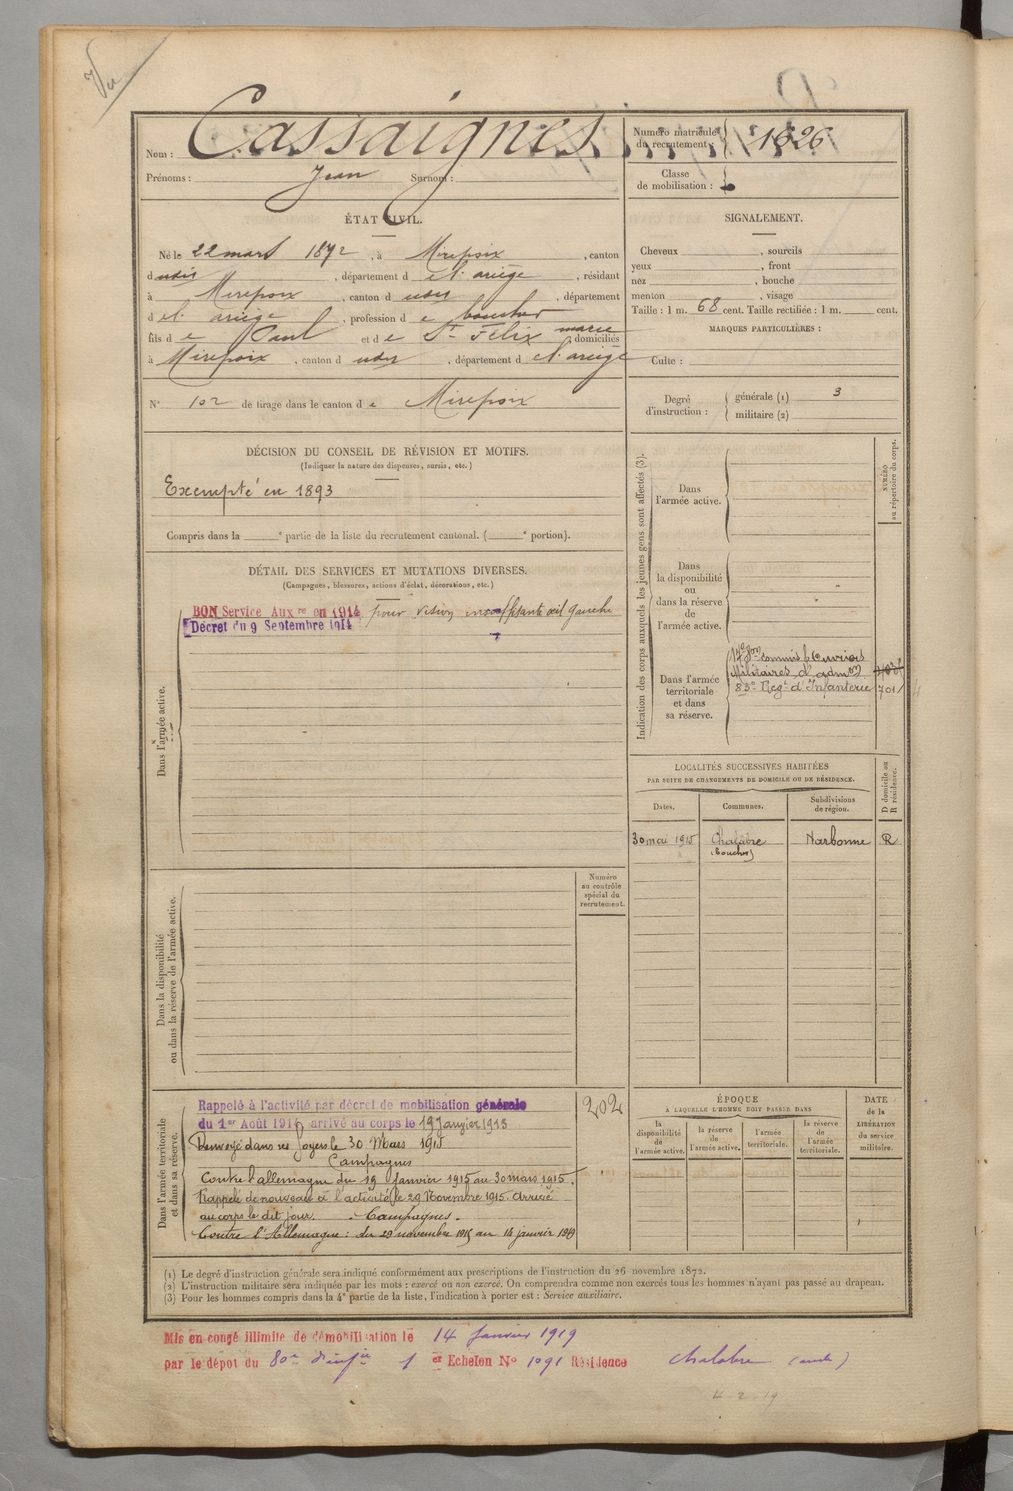 Vu
Nom : Cassaignes
Prénoms : Jean Surnom :
Numéro matricule du recrutement : 1626
Classe de mobilisation :
ÉTAT CIVIL.
Né le 22 mars 1872, à Mirepoix, canton
d udit Mirepoix, département d el'ariège, résidant
à Mirepoix, canton d udit, département
d el'ariège, profession d e boucher
fils d e Paul et d e St Félix marie, domiciliés
à Mirepoix, canton d udit, département d el'ariège
N° 102 de tirage dans le canton d e Mirepoix
SIGNALEMENT.
Cheveux , sourcils
yeux , front
nez , bouche
menton , visage
Taille : 1 m. 68 cent. Taille rectifiée : 1 m. cent.
MARQUES PARTICULIÈRES :
Culte :
Degré d'instruction : générale (1) 3
militaire (2)
DÉCISION DU CONSEIL DE RÉVISION ET MOTIFS.
(Indiquer la nature des dispenses, sursis, etc.)
Exempté en 1893
Compris dans la e partie de la liste du recrutement cantonal. ( e portion).
DÉTAIL DES SERVICES ET MUTATIONS DIVERSES.
(Campagnes, blessures, actions d'éclat, décorations, etc.)
Dans l'armée active.
BON Service Aux re en 1914 pour vision insuffisante œil gauche
Décret du 9 Septembre 1914
Indication des corps auxquels les jeunes gens sont affectés (3).
NUMÉRO au répertoire du corps.
Dans l'armée active.
Dans la disponibilité ou dans la réserve de l'armée active.
Dans l'armée territoriale et dans sa réserve.
17e Son commis & ouvriers
Militaires d'admon
83e Regt d'Infanterie 701
LOCALITÉS SUCCESSIVES HABITÉES
PAR SUITE DE CHANGEMENTS DE DOMICILE OU DE RÉSIDENCE.
D domicile ou R résidence.
Dates. Communes. Subdivisions de région.
30 mai 1915 Chalabre Narbonne R
(boucher)
Dans la disponibilité ou dans la réserve de l'armée active.
Numéro au contrôle spécial du recrutement.
Dans l'armée territoriale et dans sa réserve.
Rappelé à l'activité par décret de mobilisation générale 202
du 1er Août 1914 arrivé au corps le 19 Janvier 1915
Renvoyé dans ses foyers le 30 Mars 1915
Campagnes
Contre l'allemagne du 19 Janvier 1915 au 30 mars 1915.
Rappelé de nouveau à l'activité le 29 Novembre 1915. Arrivé
au corps le dit jour. - Campagnes -
Contre l'Allemagne : du 29 novembre 1915 au 14 janvier 1919
ÉPOQUE
À LAQUELLE L'HOMME DOIT PASSER DANS
la disponibilité de l'armée active.
la réserve de l'armée active.
l'armée territoriale.
la réserve de l'armée territoriale.
DATE de la LIBÉRATION du service militaire.
(1) Le degré d'instruction générale sera indiqué conformément aux prescriptions de l'instruction du 26 novembre 1872.
(2) L'instruction militaire sera indiquée par les mots : exercé ou non exercé. On comprendra comme non exercés tous les hommes n'ayant pas passé au drapeau.
(3) Pour les hommes compris dans la 4e partie de la liste, l'indication à porter est : Service auxiliaire.
Mis en congé illimité de démobilisation le 14 Janvier 1919
par le dépot du 80e d'infie 1 er Echelon No 1091 Résidence Chalabre (aude)
4-2-19